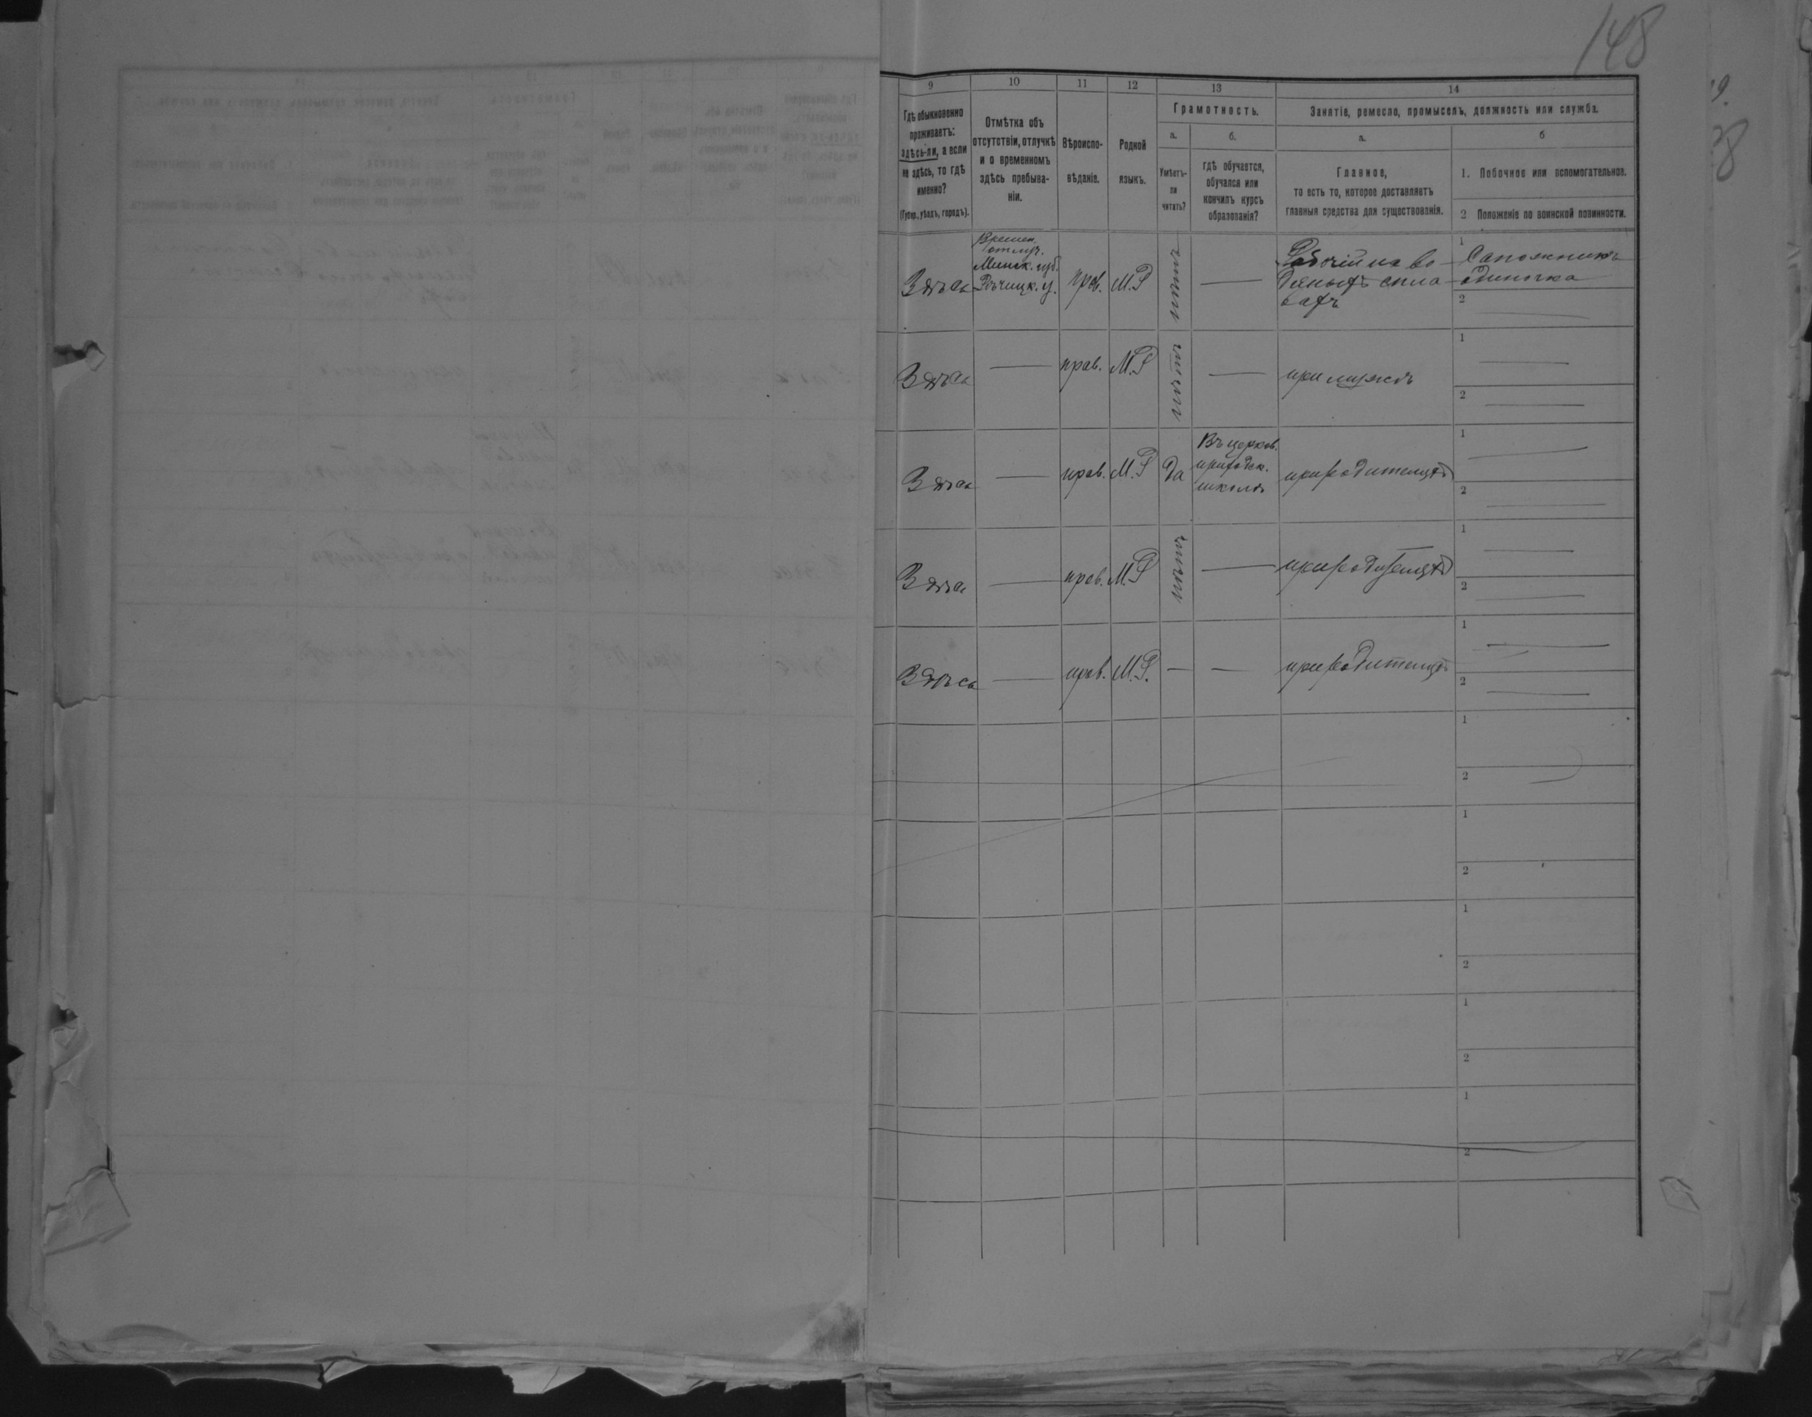 148
9
10
11
12
13
14
Гдѣ обыкновенно
проживаетъ:
здѣсь-ли, а если
не здѣсь, то гдѣ
именно?
(Губер., уѣздъ, городъ).
Отмѣтка объ
отсутствіи, отлучкѣ
и о временномъ
здѣсь пребыва-
ніи.
Вѣроиспо-
вѣданіе.
Родной
языкъ.
Грамотность.
а.
б.
Умѣетъ-
ли
читать?
гдѣ обучается,
обучался или
кончилъ курсъ
образованія?
Занятіе, ремесло, промыселъ, должность или служба.
а.
б
Главное,
то есть то, которое доставляетъ
главныя средства для существованія.
1. Побочное или вспомогательное.
2 Положеніе по воинской повинности.
Здѣсь
Времен.
отлуч.
Минск. губ.
Рѣчицк. у.
прав.
М.Р
нѣтъ
Рабочій на во
дяныхъ спла
вахъ
1
Сапожникъ
одиночка
2
Здѣсь
прав.
М.Р
нѣтъ
при мужѣ
1
2
Здѣсь
прав.
М.Р
да
Въ церков.
приходск.
школѣ
при родителяхъ
1
2
Здѣсь
прав.
М.Р
нѣтъ
при родителяхъ
1
2
Здѣсь
прав.
М.Р.
при родителяхъ
1
2
1
2
1
2
1
2
1
2
1
2